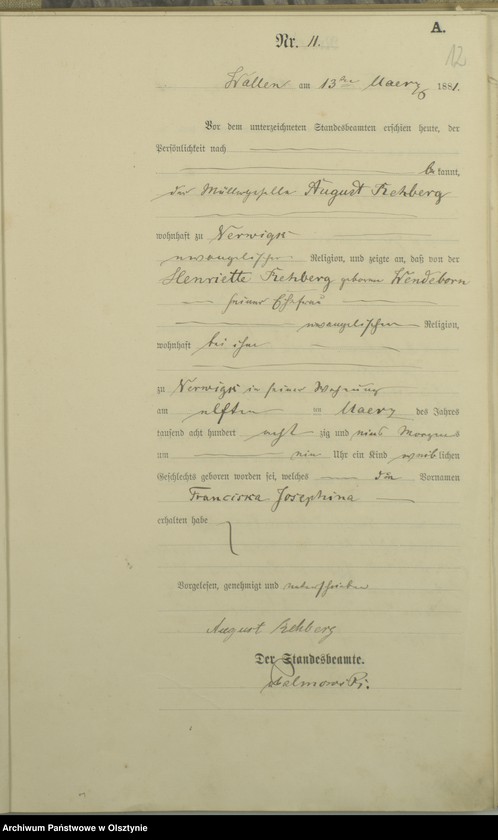 A.
Nr. 11.
12
Wallen am 13ten Maerz 1881.
Vor dem unterzeichneten Standesbeamten erschien heute, der
Persönlichkeit nach
bekannt,
der Müllergeselle August Rehberg
wohnhaft zu Nerwigk
evangelischer Religion, und zeigte an, daß von der
Henriette Rehberg geborene Wendeborn
seiner Ehefrau
evangelischen Religion,
wohnhaft bei ihm
zu Nerwigk in seiner Wohnung
am elften Maerz des Jahres
tausend acht hundert achtzig und eins Morgens
um ein Uhr ein Kind weiblichen
Geschlechts geboren worden sei, welches die Vornamen
Franciska Josephina
erhalten habe
Vorgelesen, genehmigt und unterschrieben
August Rehberg
Der Standesbeamte.
Archiwum Państwowe w Olsztynie